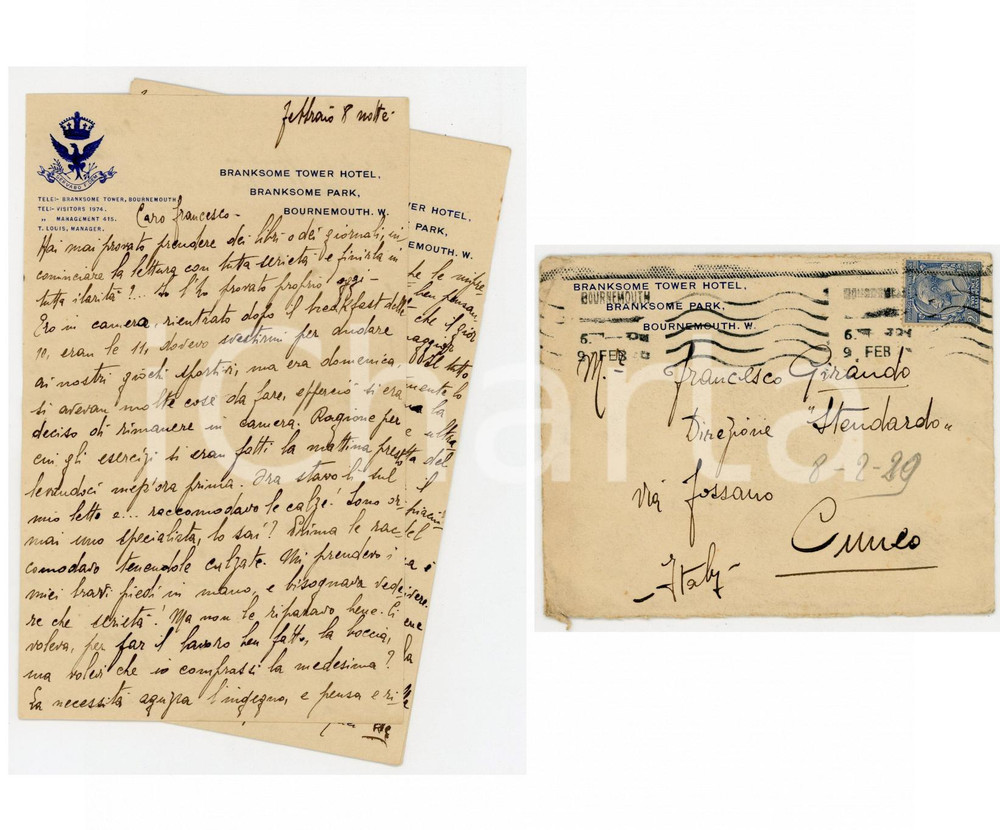 febbraio 8 notte
SERVABO FIDEM
TELE:- BRANKSOME TOWER, BOURNEMOUTH.
TEL:- VISITORS 1974.
" MANAGEMENT 415.
T. LOUIS, MANAGER.
BRANKSOME TOWER HOTEL,
BRANKSOME PARK,
BOURNEMOUTH. W.
Caro Francesco -
Hai mai provato prendere dei libri o dei giornali, in-
cominciare la lettura con tutta serietà e finirla in
tutta ilarità?... Io l'ho provato proprio oggi -
Ero in camera, rientrato dopo il breakfast delle
10, eran le 11, dovevo vestirmi per andare
ai nostri giochi sportivi, ma era domenica,
si avevan molte cose da fare, epperciò si era
deciso di rimanere in camera. Ragione per
cui gli esercizi si eran fatti la mattina presto
levandoci mezz'ora prima. Ora stavo lì sul
mio letto e... raccomodavo le calze! Sono or-
mai uno specialista, lo sai? Prima le rac-
comodavo tenendole calzate. Mi prendevo i
miei bravi piedi in mano, e bisognava vede-
re che serietà! Ma non le riparavo bene. Ci
voleva, per far il lavoro ben fatto, la boccia,
ma volevi che io comprassi la medesima?
La necessità aguzza l'ingegno, e pensa e ri-
WER HOTEL,
PARK,
EMOUTH. W.
che il gior
mente lo
ultra
del
il
la
iCharta
BRANKSOME TOWER HOTEL,
BRANKSOME PARK,
BOURNEMOUTH. W.
BOURNEMOUTH
9 FEB
9 FEB
M.r Francesco Girando
Direzione "Stendardo"
8-2-29
Via Fossano
Cuneo
- Italy -